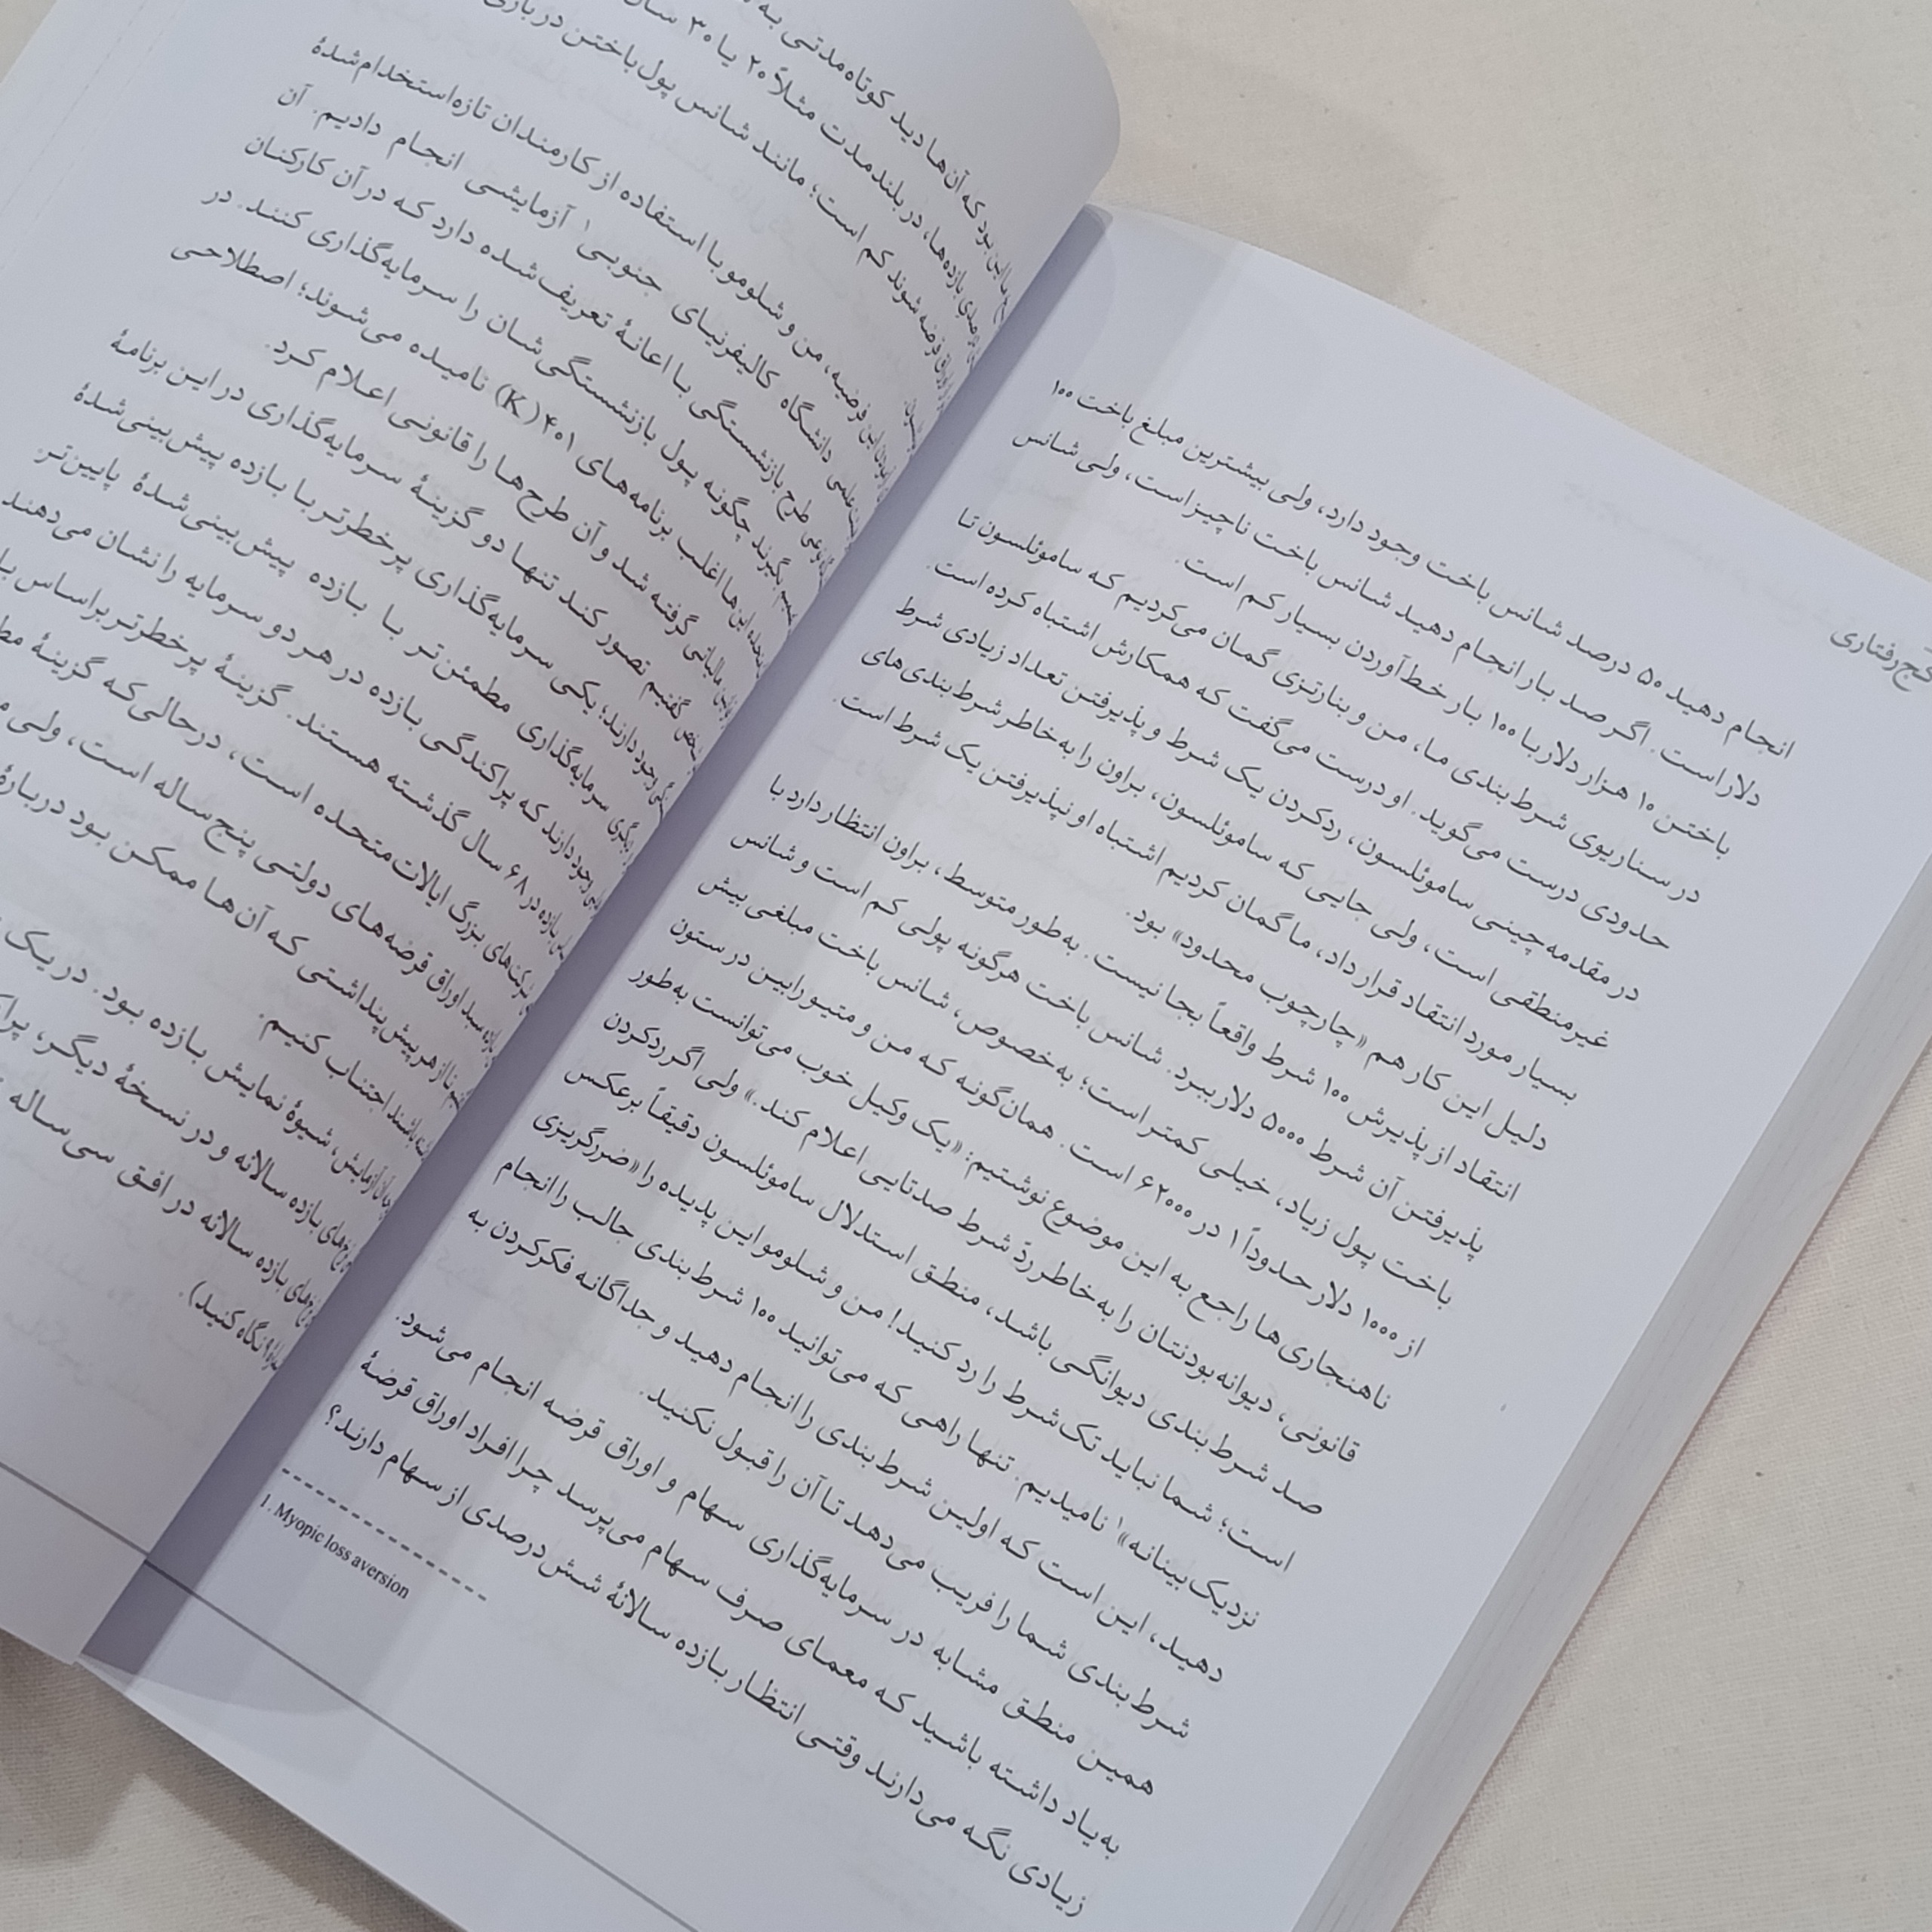 کج‌رفتاری
انجام دهید ۵۰ درصد شانس باخت وجود دارد، ولی بیشترین مبلغ باخت ۱۰۰
دلار است. اگر صد بار انجام دهید شانس باخت ناچیز است، ولی شانس
باختن ۱۰ هزار دلار با ۱۰۰ بار خط آوردن بسیار کم است.
در سناریوی شرط‌بندی ما، من و بنارتزی گمان می‌کردیم که ساموئلسون تا
حدودی درست می‌گوید. او درست می‌گفت که همکارش اشتباه کرده است.
در مقدمه‌چینی ساموئلسون، رد کردن یک شرط و پذیرفتن تعداد زیادی شرط
غیرمنطقی است، ولی جایی که ساموئلسون، براون را به‌خاطر شرط‌بندی‌های
بسیار مورد انتقاد قرار داد، ما گمان کردیم اشتباه او نپذیرفتن یک شرط است.
دلیل این کار هم «چارچوب محدود» بود.
انتقاد از پذیرش ۱۰۰ شرط واقعاً بجا نیست. به‌طور متوسط، براون انتظار دارد با
پذیرفتن آن شرط ۵۰۰۰ دلار ببرد. شانس باخت هرگونه پولی کم است و شانس
باخت پول زیاد، خیلی کمتر است؛ به‌خصوص، شانس باخت مبلغی بیش
از ۱۰۰۰ دلار حدوداً ۱ در ۶۲۰۰۰ است. همان‌گونه که من و متیو رابین در ستون
ناهنجاری‌ها راجع به این موضوع نوشتیم: «یک وکیل خوب می‌توانست به‌طور
قانونی، دیوانه بودنتان را به‌خاطر ردّ شرط صدتایی اعلام کند.» ولی اگر رد کردن
صد شرط‌بندی دیوانگی باشد، منطق استدلال ساموئلسون دقیقاً برعکس
است؛ شما نباید تک‌شرط را رد کنید! من و شلومو این پدیده را «ضررگریزی
نزدیک‌بینانه»۱ نامیدیم. تنها راهی که می‌توانید ۱۰۰ شرط‌بندی جالب را انجام
دهید، این است که اولین شرط‌بندی را انجام دهید و جداگانه فکر کردن به
شرط‌بندی شما را فریب می‌دهد تا آن را قبول نکنید.
همین منطق مشابه در سرمایه‌گذاری سهام و اوراق قرضه انجام می‌شود.
به یاد داشته باشید که معمای صرف سهام می‌پرسد چرا افراد اوراق قرضهٔ
زیادی نگه می‌دارند وقتی انتظار بازده سالانهٔ شش درصدی از سهام دارند؟
1. Myopic loss aversion
که آن‌ها دید کوتاه‌مدتی به
در بلندمدت مثلاً ۲۰ یا ۳۰
قرضه شوند کم است؛ مانند شانس پول باختن در بازی
فرضیه، من و شلومو با استفاده از کارمندان تازه استخدام‌شدهٔ
دانشگاه کالیفرنیای جنوبی۱ آزمایشی انجام دادیم. آن
طرح بازنشستگی با اعانهٔ تعریف‌شده دارد که در آن کارکنان
بگیرند چگونه پول بازنشستگی‌شان را سرمایه‌گذاری کنند. در
این‌ها اغلب برنامه‌های ۴۰۱(K) نامیده می‌شوند؛ اصطلاحی
گرفته شد و آن طرح‌ها را قانونی اعلام کرد.
گفتیم تصور کند تنها دو گزینهٔ سرمایه‌گذاری در این برنامهٔ
وجود دارند؛ یکی سرمایه‌گذاری پرخطرتر با بازده پیش‌بینی‌شدهٔ
سرمایه‌گذاری مطمئن‌تر با بازده پیش‌بینی‌شدهٔ پایین‌تر
وجود دارند که پراکندگی بازده در هر دو سرمایه را نشان می‌دهند
بازده در ۶۸ سال گذشته هستند. گزینهٔ پرخطرتر براساس
بزرگ ایالات متحده است، درحالی‌که گزینهٔ
سبد اوراق قرضه‌های دولتی پنج‌ساله است، ولی
از هر پیش‌پنداشتی که آن‌ها ممکن بود دربارهٔ
باشند اجتناب کنیم.
آزمایش، شیوهٔ نمایش بازده بود. در یک
بازده سالانه و در نسخهٔ دیگر،
بازده سالانه در افق سی‌ساله
نگاه کنید).